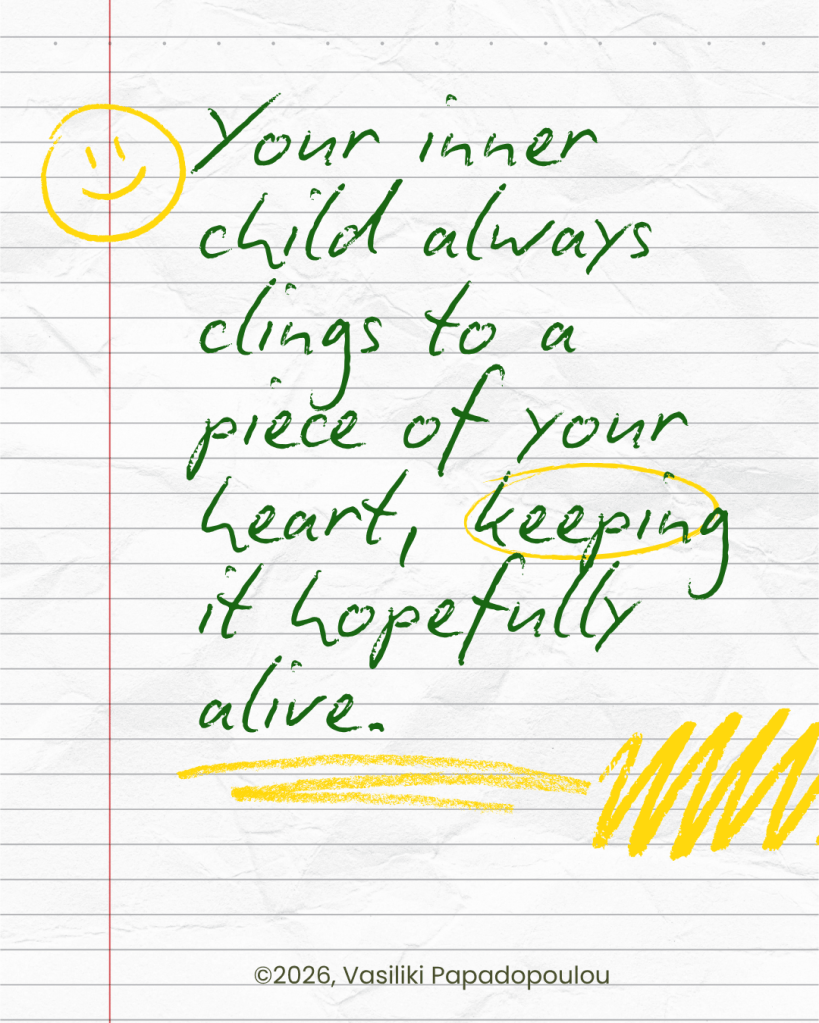 Your inner
child always
clings to a
piece of your
heart, keeping
it hopefully
alive.
©2026, Vasiliki Papadopoulou